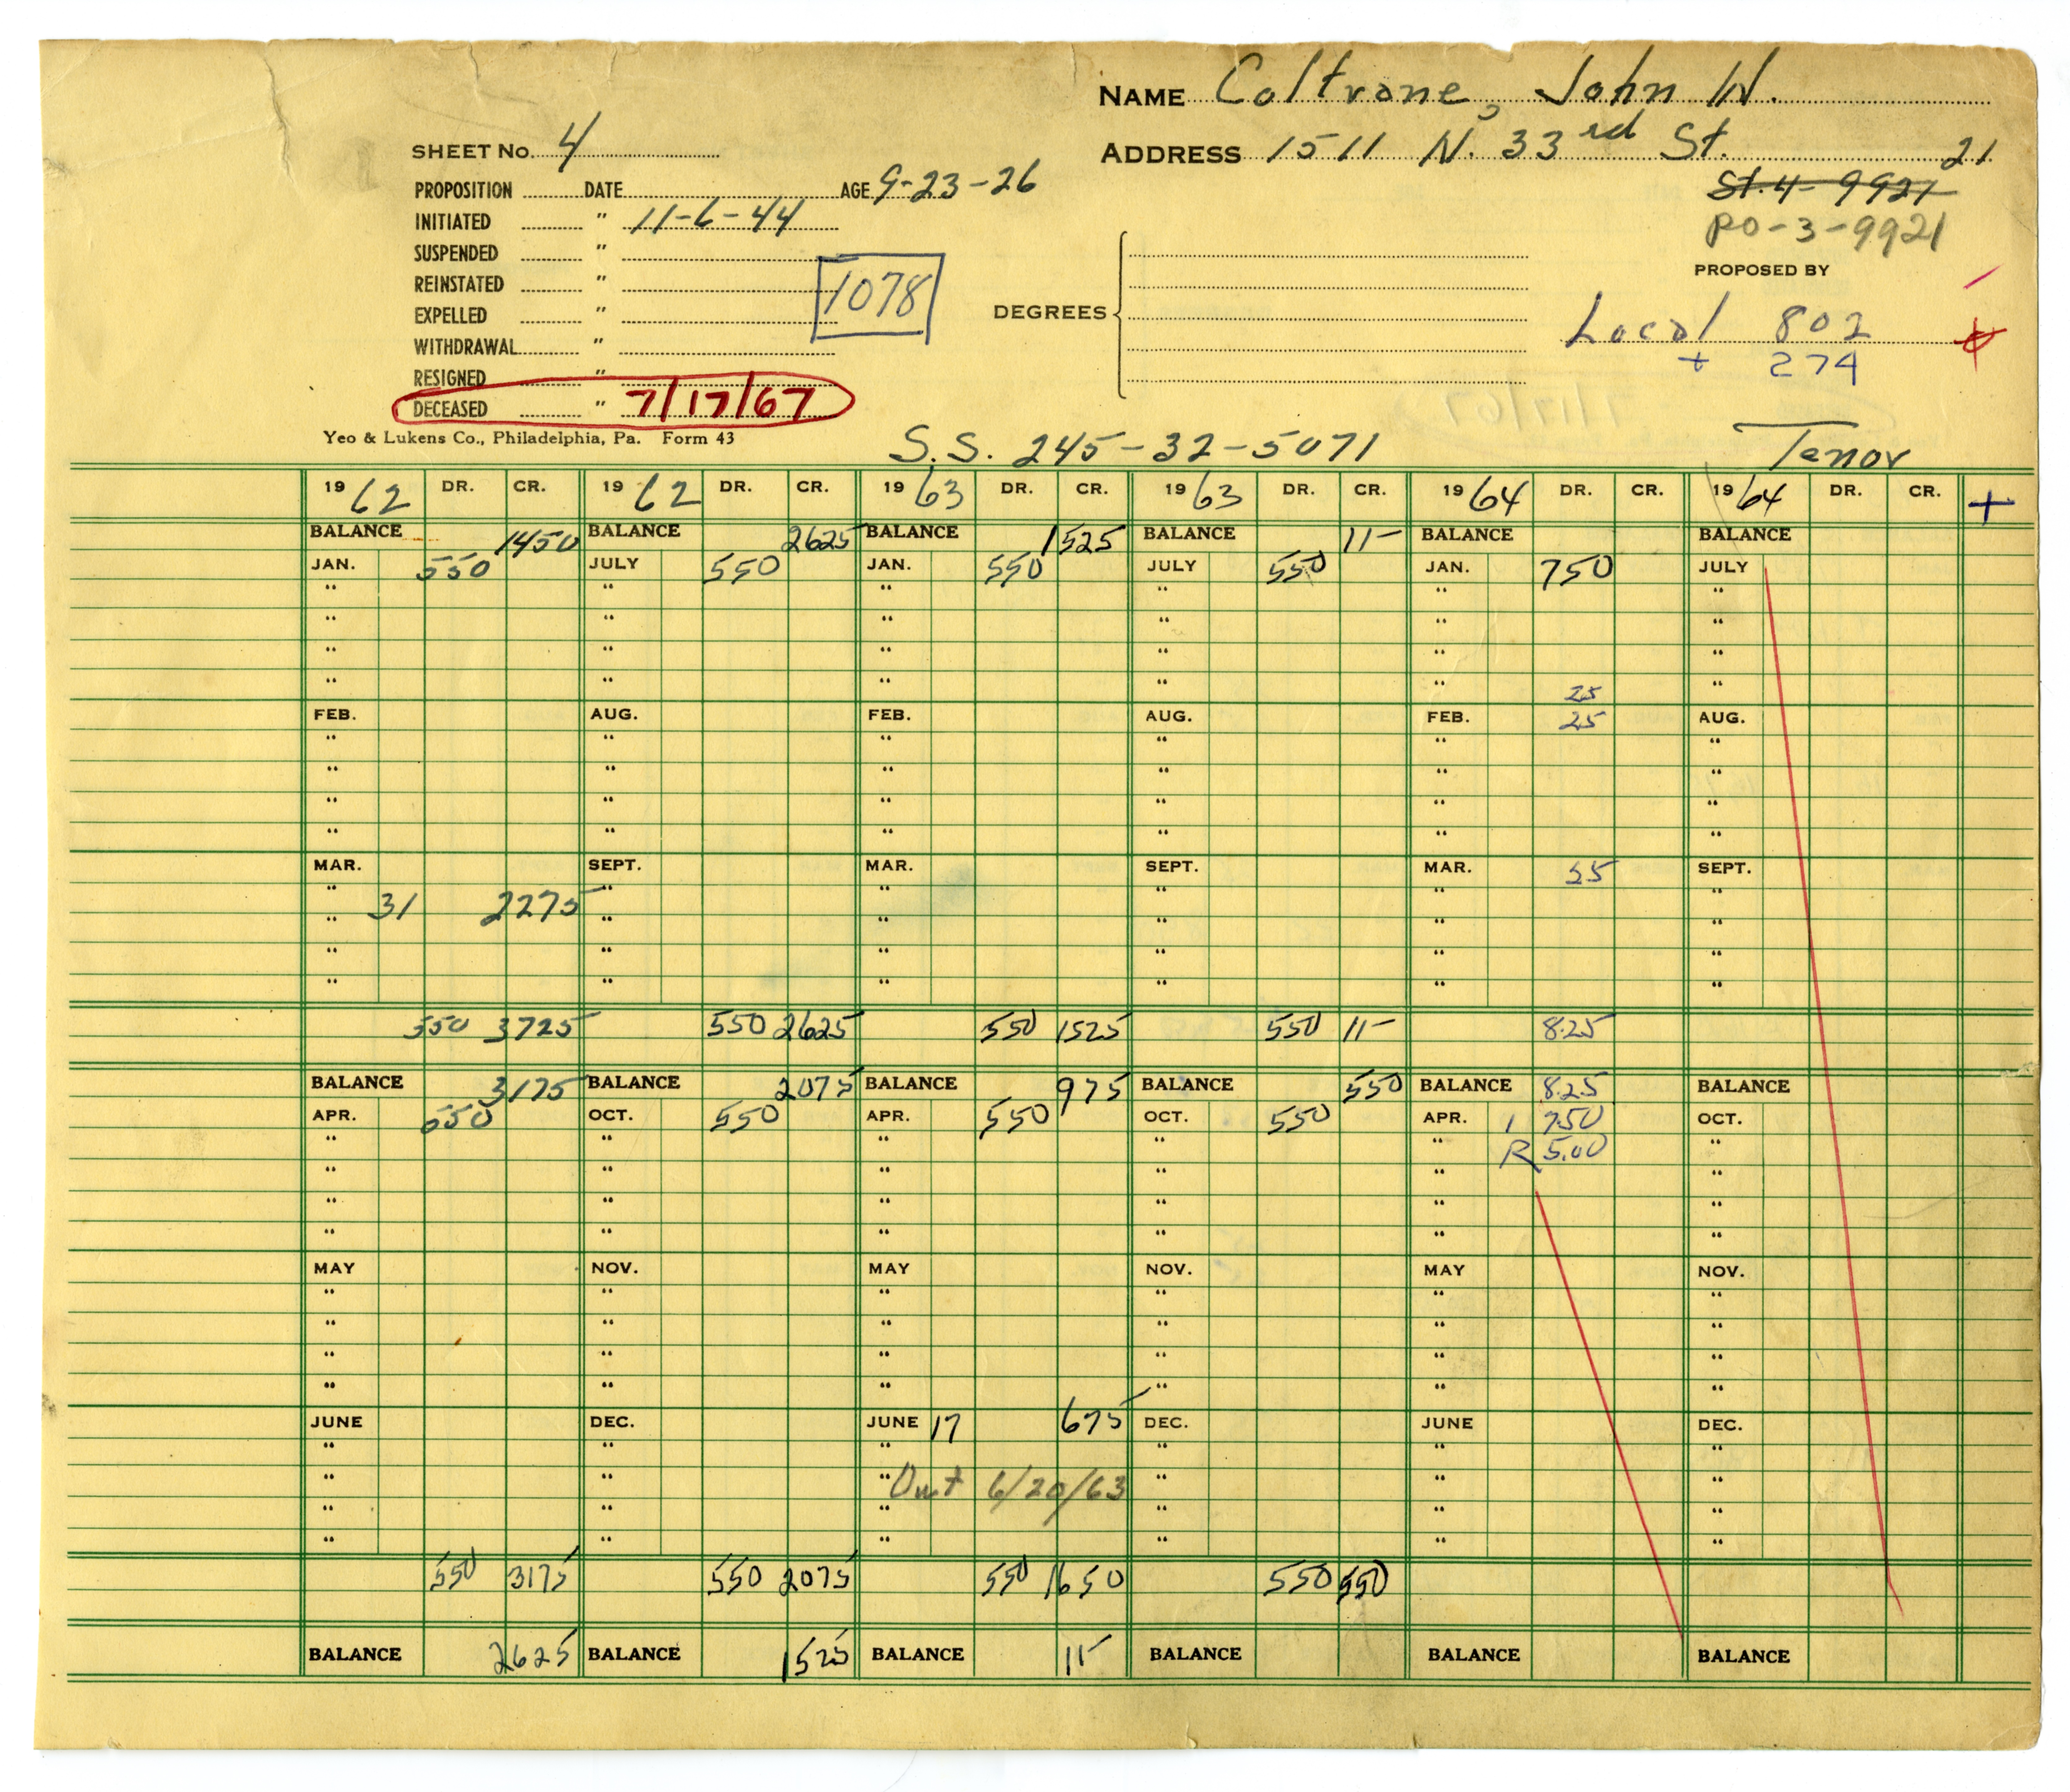 NAME Coltrane, John W.
SHEET No. 4
ADDRESS 1511 N. 33rd St. 21
PROPOSITION DATE AGE 9-23-26
St. 4-9921
INITIATED " 11-6-44
RO-3-9921
SUSPENDED "
PROPOSED BY
REINSTATED "
1078
DEGREES
EXPELLED "
Local 802
WITHDRAWAL "
+ 274
RESIGNED "
DECEASED " 7/17/67
Yeo & Lukens Co., Philadelphia, Pa. Form 43
S.S. 245-32-5071
Tenor
1962 DR. CR. 1962 DR. CR. 1963 DR. CR. 1963 DR. CR. 1964 DR. CR. 1964 DR. CR. +
BALANCE 1450 BALANCE 2625 BALANCE 1525 BALANCE 11- BALANCE BALANCE
JAN. 550 JULY 550 JAN. 550 JULY 550 JAN. 750 JULY
" " " " " "
" " " " " "
" " " " " "
" " " " " 25 "
FEB. AUG. FEB. AUG. FEB. 25 AUG.
" " " " " "
" " " " " "
" " " " " "
" " " " " "
MAR. SEPT. MAR. SEPT. MAR. 25 SEPT.
" " " " " "
" 31 2275 " " " " "
" " " " " "
" " " " " "
550 3725 550 2625 550 1525 550 11- 8.25
BALANCE 3175 BALANCE 2075 BALANCE 975 BALANCE 550 BALANCE 8.25 BALANCE
APR. 550 OCT. 550 APR. 550 OCT. 550 APR. 1 7.50 OCT.
" " " " " R 5.00 "
" " " " " "
" " " " " "
" " " " " "
MAY NOV. MAY NOV. MAY NOV.
" " " " " "
" " " " " "
" " " " " "
" " " " " "
JUNE DEC. JUNE 17 675 DEC. JUNE DEC.
" " " " " "
" " " 6/20/63 " " "
" " " " " "
" " " " " "
550 3175 550 2075 550 1650 550 550
BALANCE 2625 BALANCE 1525 BALANCE 11- BALANCE BALANCE BALANCE